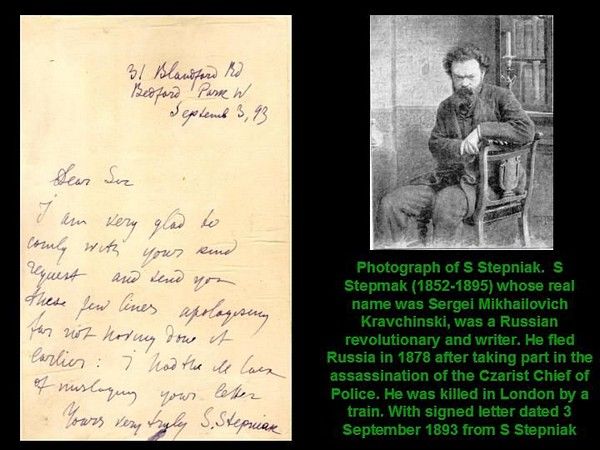 31 Blandford Rd
Bedford Park W
Septemb 3, 93
Dear Sir
I am very glad to
comly with your kind
request and send you
these few lines apologising
for not having done it
earlier: I had the ill luck
of mislaying your letter
Yours very truly S. Stepniak
Photograph of S Stepniak. S
Stepmak (1852-1895) whose real
name was Sergei Mikhailovich
Kravchinski, was a Russian
revolutionary and writer. He fled
Russia in 1878 after taking part in the
assassination of the Czarist Chief of
Police. He was killed in London by a
train. With signed letter dated 3
September 1893 from S Stepniak